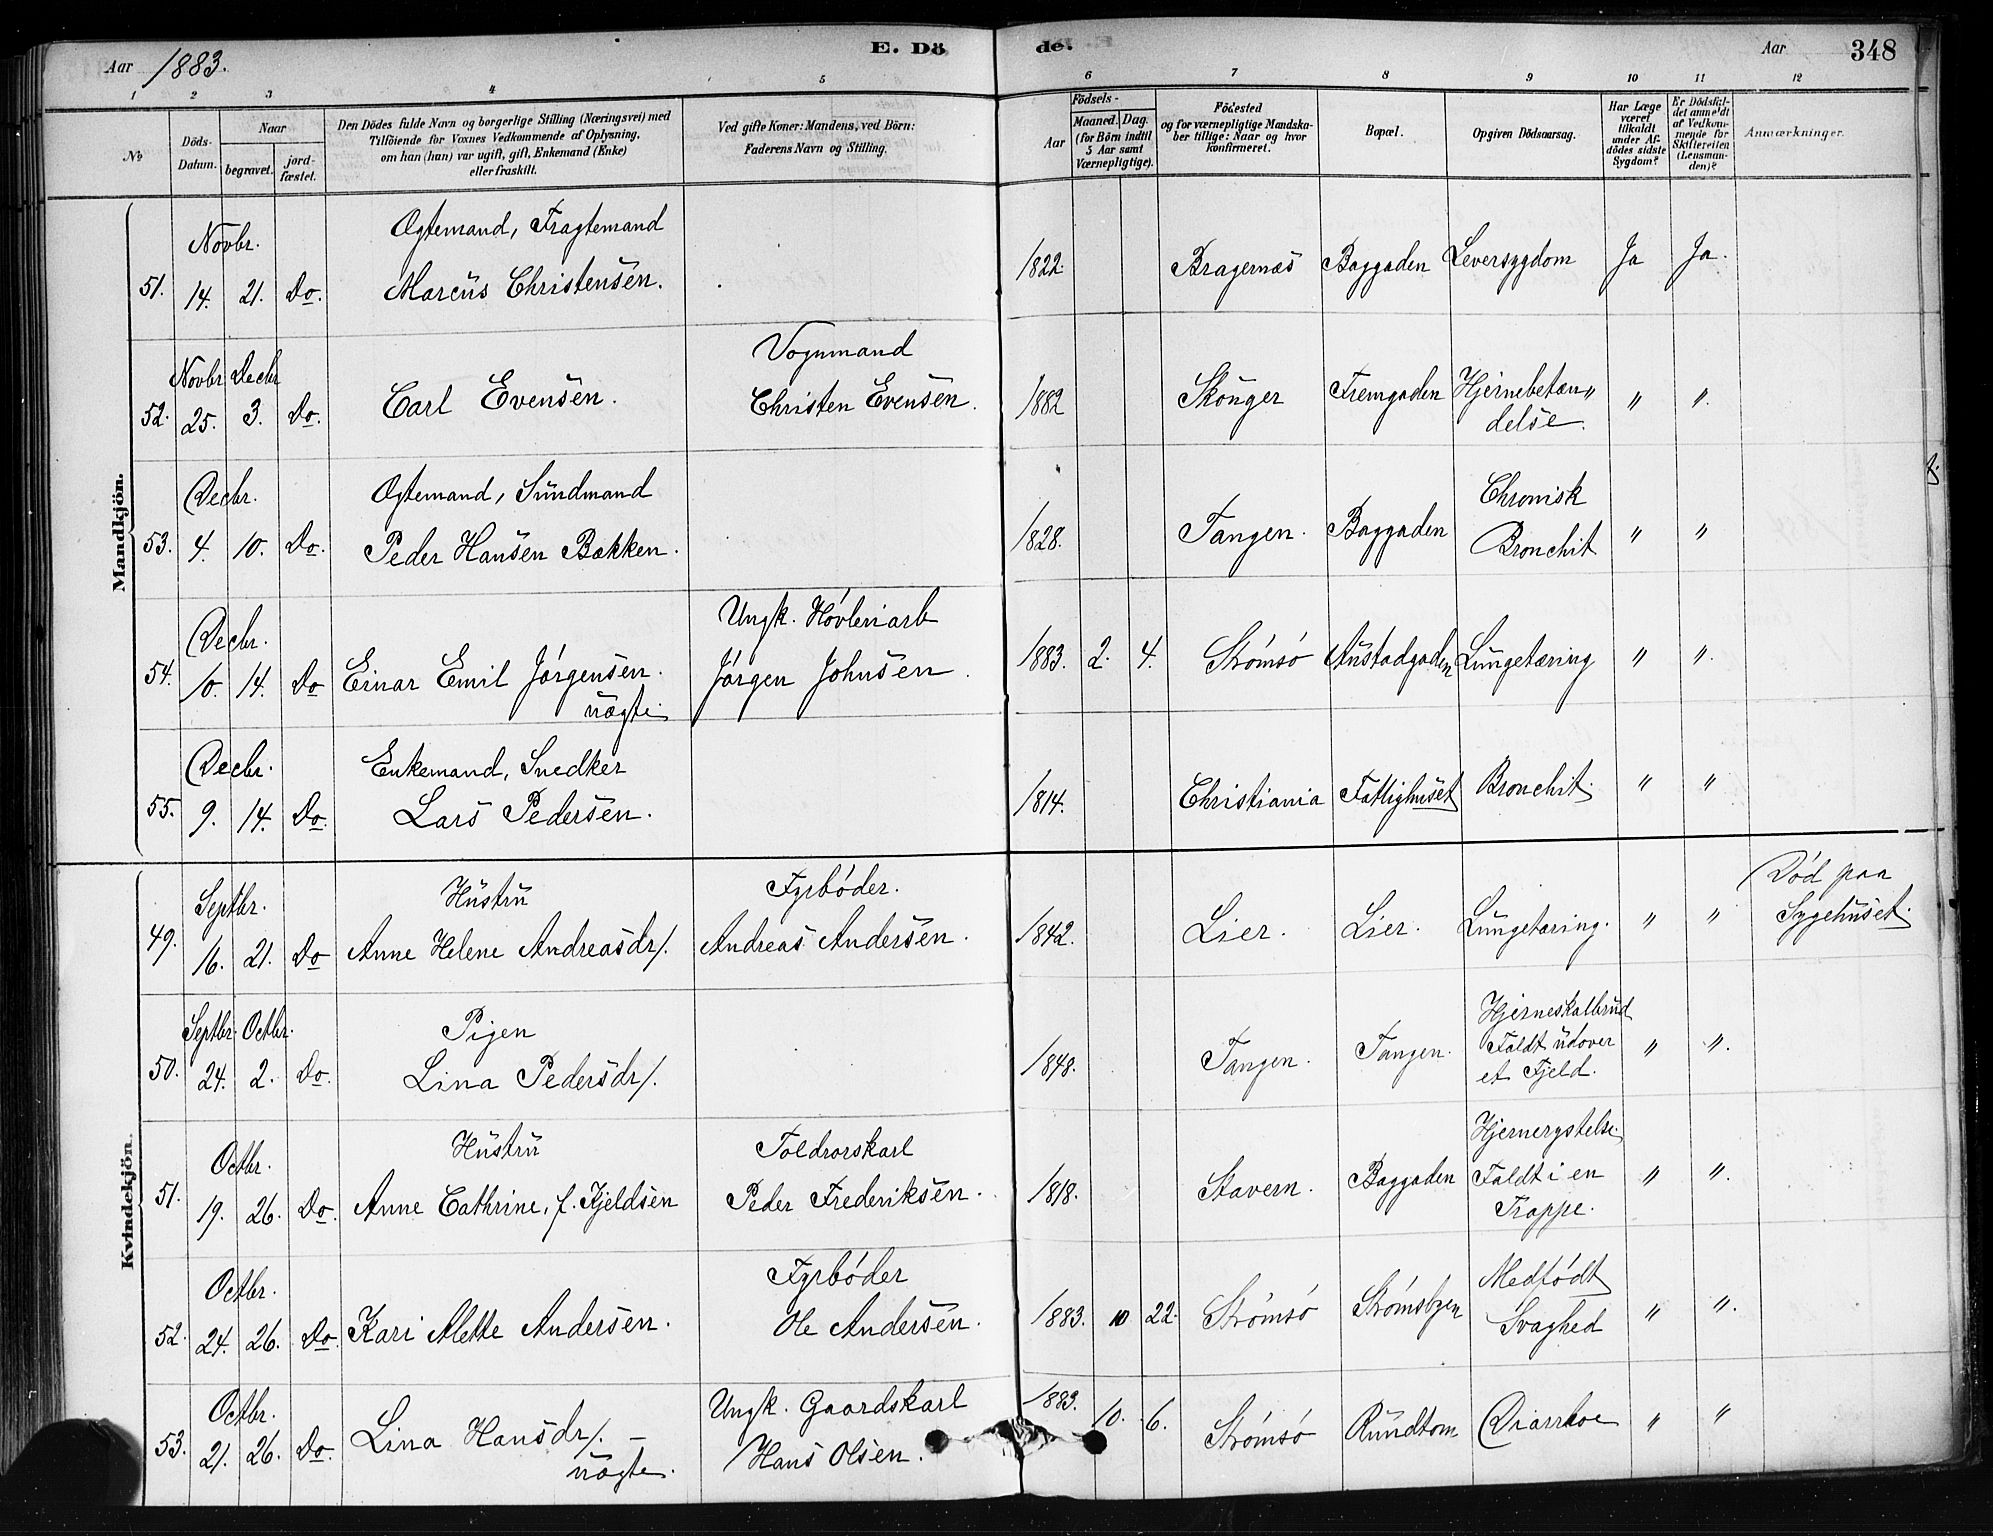 Aar 1883. E. Dö de. Aar 348
1 2 3 4 5 6 7 8 9 10 11 12
No
Döds-Datum.
Naar
begravet.
jordfæstet.
Den Dödes fulde Navn og borgerlige Stilling (Næringsvei) med
Tilföiende for Voxnes Vedkommende af Oplysning,
om han (hun) var ugift, gift, Enkemand (Enke)
eller fraskilt.
Ved gifte Koner: Mandens, ved Börn:
Faderens Navn og Stilling.
Födsels-
Aar
Maaned. Dag.
(for Börn indtil
5 Aar samt
Værnepligtige).
Födested
og for værnepligtige Mandska-
ber tillige: Naar og hvor
konfirmeret.
Bopæl.
Opgiven Dödsaarsag.
Har Læge
været
tilkaldt
under Af-
dödes sidste
Sygdom?
Er Dödsfal-
det anmeldt
af Vedkom-
mende for
Skifteretten
(Lensman-
den)?
Anmærkninger.
Mandkjön.
Novbr. Ogtemand, Fragtemand
51. 14. 21. Do. Marcus Christensen. 1822. Bragernæs Baggaden Leversygdom Ja Ja.
Novbr Decbr Vognmand
52. 25. 3. Do. Carl Evensen. Christen Evensen. 1882 Skouger Fremgaden Hjernebetæn„
delse. " ".
Decbr. Ogtemand, Sundmand Chronisk
53. 4. 10. Do. Peder Hansen Bækken. 1828. Tangen. Baggaden Bronchit " "
Decbr. Ungk. Hóvleriarb
54. 10. 14. Do Einar Emil Jórgensen. Jórgen Johnsen. 1883. 2. 4. Strómsó Austadgaden Lungetæring " ".
uægte.
Decbr. Enkemand, Snedker
55. 9. 14. Do. Lars Pedersen. 1814. Christiania Fattighuset Bronchit. " "
Kvindekjön.
Septbr. Hustru Fyrbóder. Dód paa
49. 16. 21. Do Anne Helene Andreasdr/. Andreas Andersen. 1842. Lier. Lier. Lungetæring. " " Sygehuset.
Septbr. Octbr. Pigen Hjerneskalbrud
50. 24. 2. Do. Lina Pedersdr/. 1848. Tangen. Tangen. Faldt udover " ".
et Fjeld.
Octbr. Hustru Toldrorskarl Hjernerystelse.
51. 19. 26. Do. Anne Cathrine, f. Kjeldsen Peder Frederiksen. 1818. Stavern. Baggaden Faldt i en " ".
Trappe.
Octbr. Fyrbóder Medfódt
52. 24. 26. Do. Kari Alette Andersen. Ole Andersen. 1883. 10 22. Strómsó Strómsbyen Svaghed " ".
Octbr. Ungk. Gaardskarl
53. 21. 26. Do. Lina Hansdr/. — Hans Olsen. 1883. 10. 6. Strómsó Rundtom Diarrhoe " "
uægte.